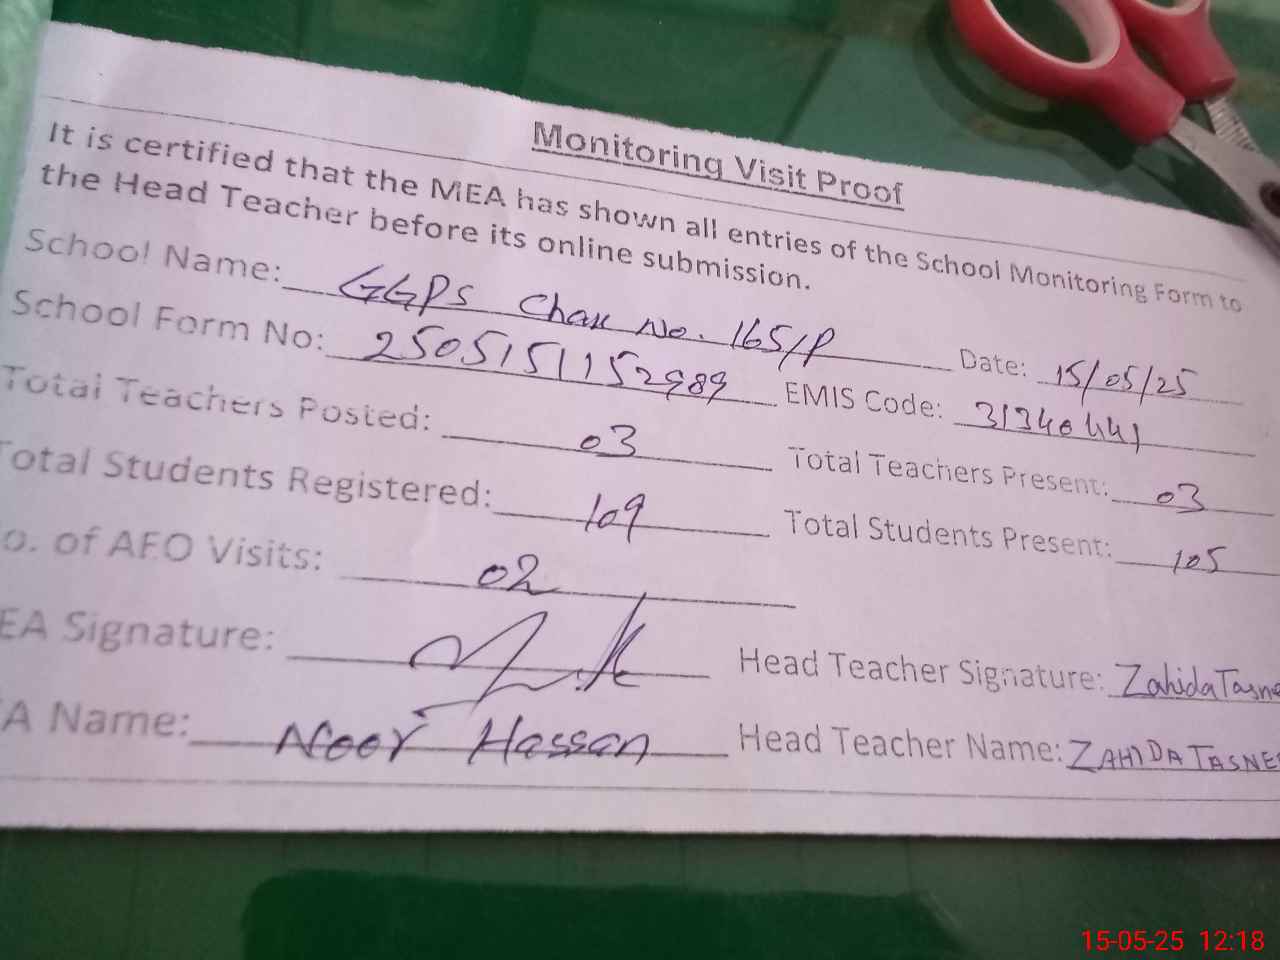 Monitoring Visit Proof
It is certified that the MEA has shown all entries of the School Monitoring Form to
the Head Teacher before its online submission.
School Name: GGPS Chak No. 165/P Date: 15/05/25
School Form No: 2505151152989 EMIS Code: 31340441
Total Teachers Posted: 03 Total Teachers Present: 03
Total Students Registered: 109 Total Students Present: 105
o. of AEO Visits: 02
EA Signature: Head Teacher Signature: Zahida Tasne
A Name: Noor Hassan Head Teacher Name: ZAHIDA TASNE
15-05-25 12:18